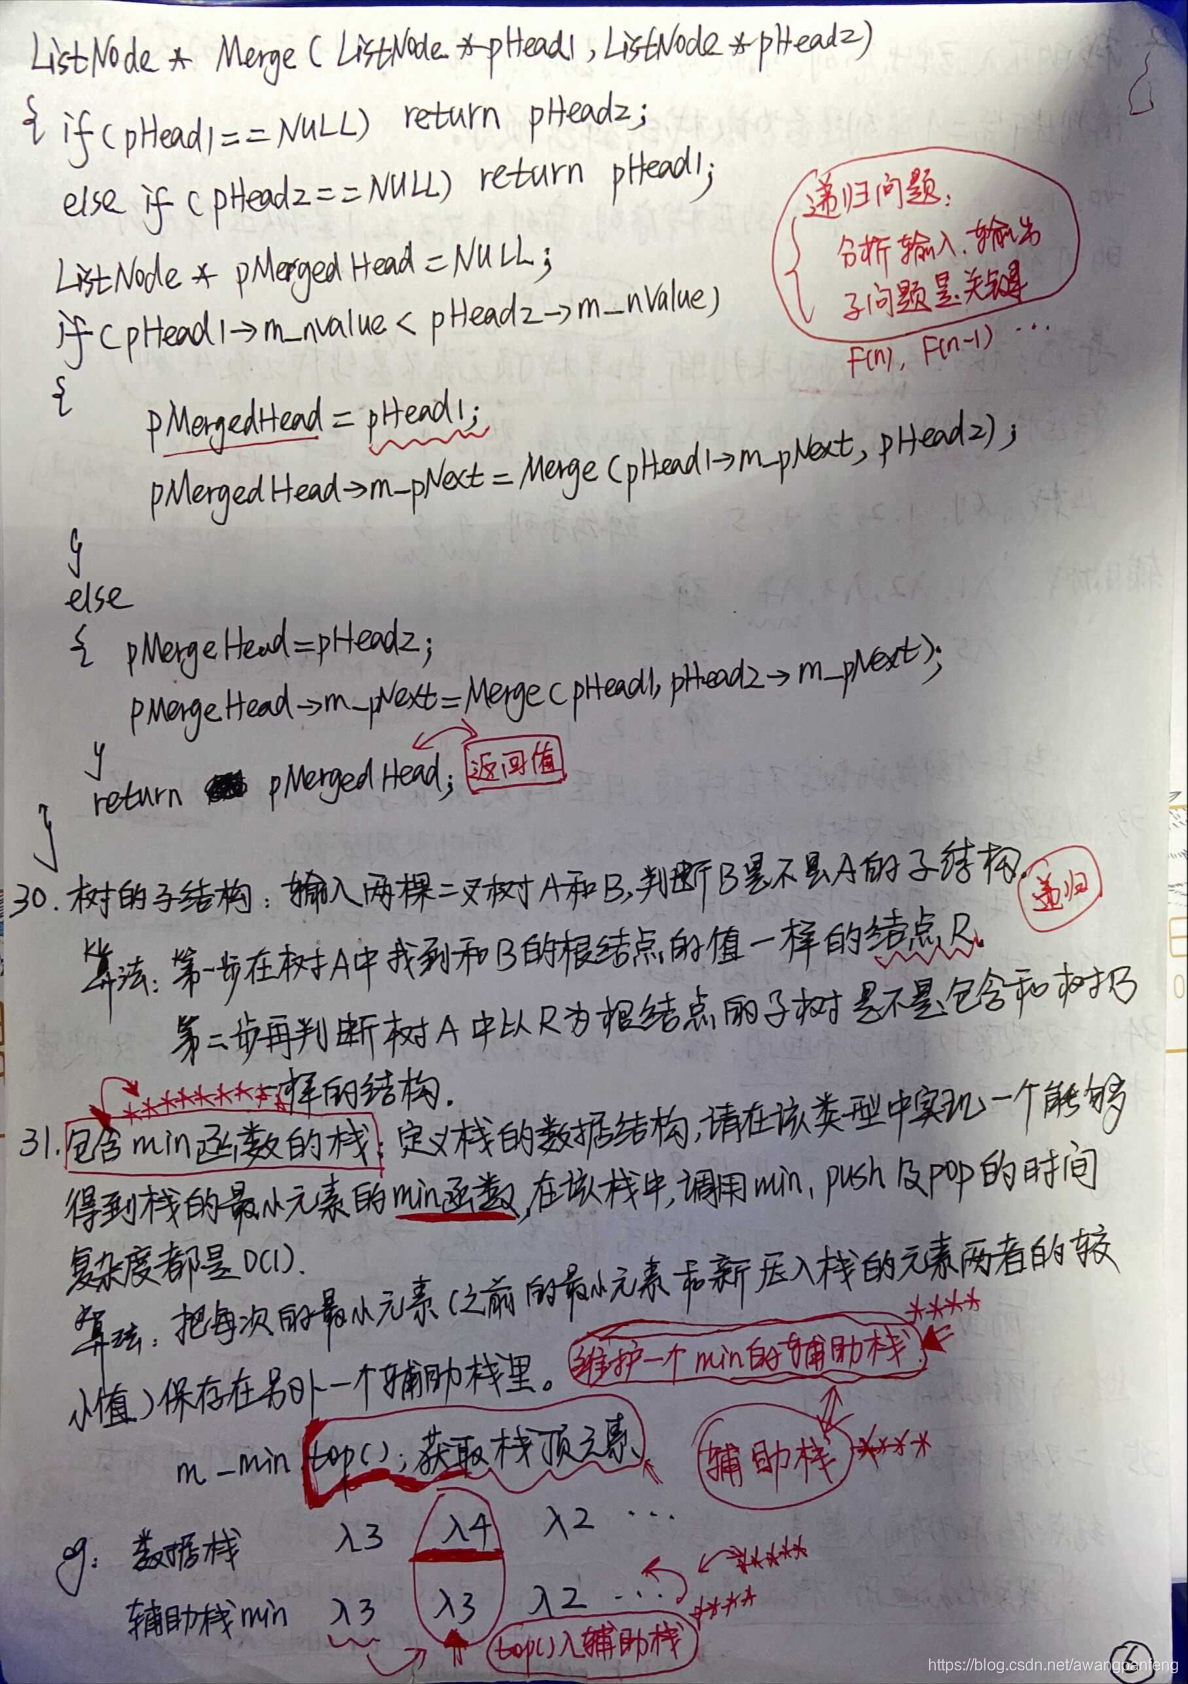 ListNode * Merge ( ListNode *pHead1, ListNode *pHead2)
{ if( pHead1==NULL) return pHead2;
else if ( pHead2==NULL) return pHead1;
递归问题:
分析输入、输出
子问题是关键
F(n), F(n-1) ...
ListNode * pMergedHead=NULL;
if( pHead1→m_nvalue < pHead2→m_nValue)
{
pMergedHead = pHead1;
pMergedHead→m_pNext=Merge(pHead1→m_pNext, pHead2);
}
else
{ pMergeHead=pHead2;
pMergeHead→m_pNext=Merge(pHead1, pHead2→m_pNext);
}
return pMergedHead; 返回值
}
30. 树的子结构: 输入两棵二叉树A和B,判断B是不是A的子结构. 递归
算法: 第一步在树A中找到和B的根结点的值一样的结点R.
第二步再判断树A中以R为根结点的子树是不是包含和树B
一样的结构.
31. 包含min函数的栈: 定义栈的数据结构,请在该类型中实现一个能够
得到栈的最小元素的min函数,在该栈中,调用min, push及pop的时间
复杂度都是O(1).
算法: 把每次的最小元素(之前的最小元素和新压入栈的元素两者的较
小值)保存在另外一个辅助栈里。 维护一个min的辅助栈 ****
m_min top(); 获取栈顶元素 辅助栈 ****
eg: 数据栈 入3 入4 入2 ...
辅助栈min 入3 入3 入2 ...
top()入辅助栈
6
https://blog.csdn.net/awangpanfeng